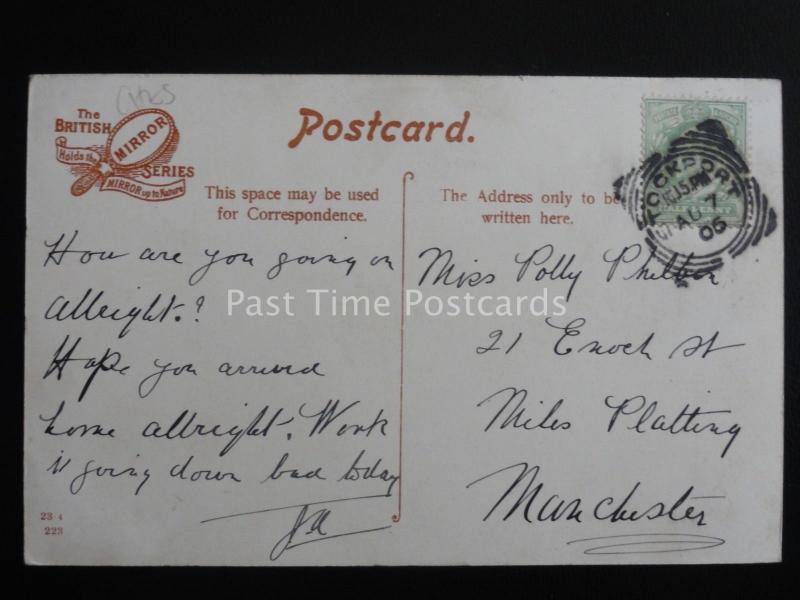 The
BRITISH
MIRROR
SERIES
Holds the
MIRROR up to Nature
Postcard.
This space may be used
for Correspondence.
The Address only to be
written here.
STOCKPORT
AU 7
06
How are you going on
allright.?
Hope you arrived
home allright. Work
is going down bad today
Miss Polly
21 Enoch St
Miles Platting
Manchester
23 4
223
Past Time Postcards